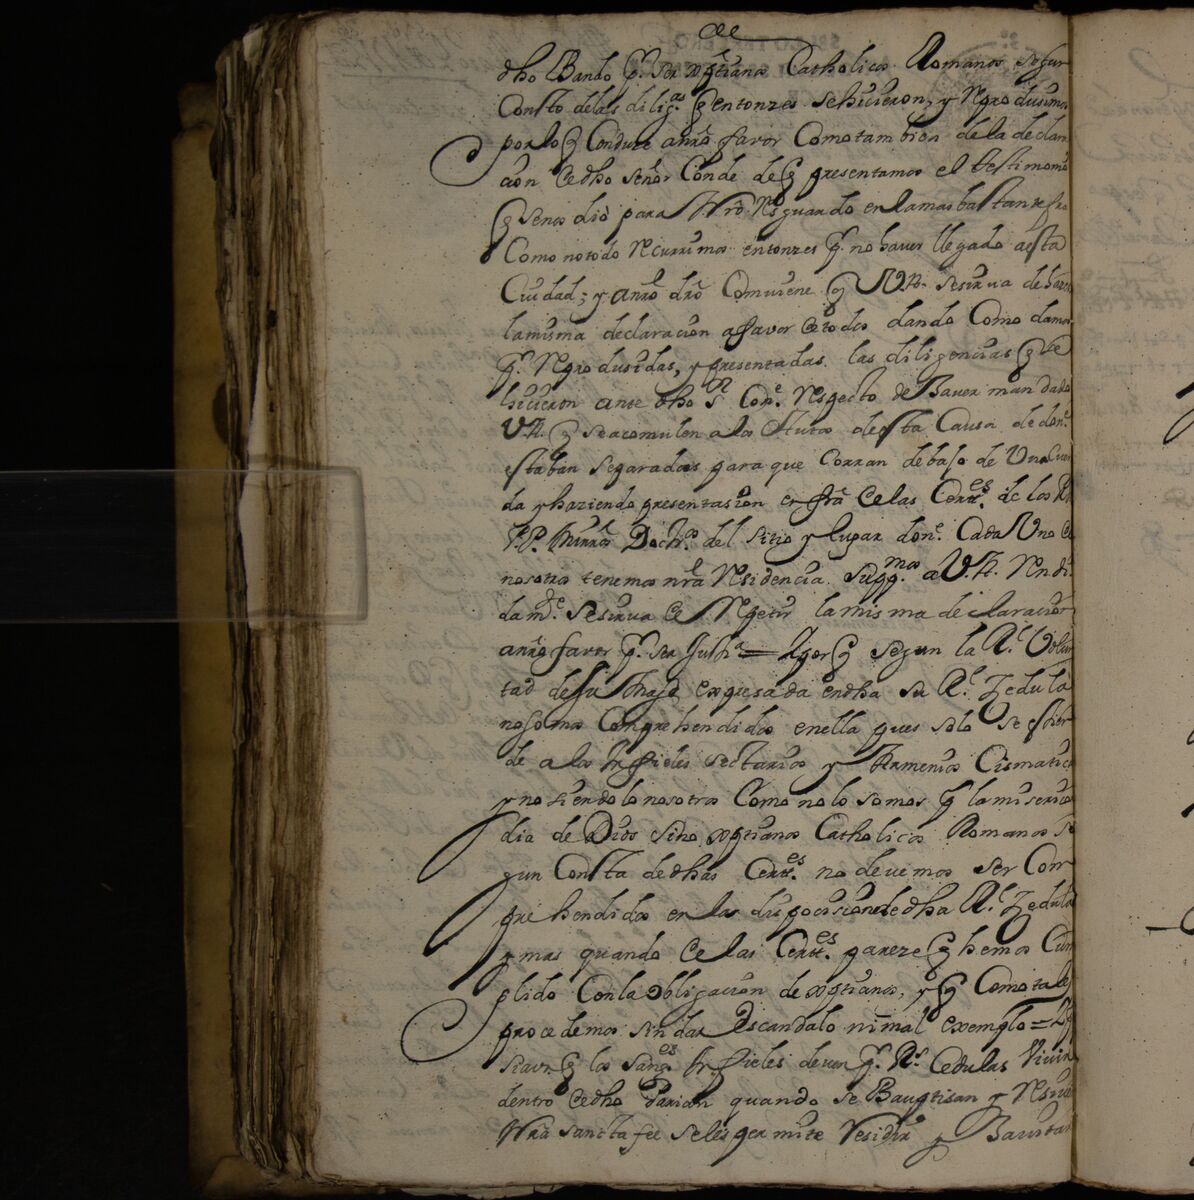 dho Bando pr. ser xptianos Catholicos Romanos segun
Consto delas dilig.as q entonzes sehicieron, y Reprodusimos
por lo q Conduze anrô favor Como tambien dela declara
cion de dho señor Conde de q presentamos el testimonio
q senos diò para Nrô Resguardo en lamas bastante fra
Como notodo Recurrimos entonzes pr. no haver llegado aesta
Ciudad; y anrô drô Combiene q VA. sesirva de hazer
lamisma declaracion afavor de todos dando Como damos
pr. Reprodusidas, y presentadas las diligencias q se
hicieron ante dho Sr. Con.e respecto de haver mandado
VA. q seacomulen alos Autos desta Causa de don.e
estaban separadas para que Corran debajo de Una Cuer
da y haziendo presentasion en frâ de las Certt.es de los RR
PP. Minros Doctr.os del sitio y lugar don.e Cada Uno de
nosotros tenemos nrâ Residencia. Supp.mos a V.A. Rendi
dam.te sesirva de Repetir lamisma declaracion
anrô favor pr. ser Justi.a = Y por q segun la R.l Volun
tad de su Magd expresada endha su R.l Zedula
nosomos Comprehendidos enella pues solo se estien
de a los Infieles sectarios y Armenios Cismaticos
y no siendolo nosotros Como no lo somos pr la miserico
dia de Dios sino xptianos Catholicos Romanos se
gun Consta dedhas Certt.es no devemos ser Com
prehendidos en las disposiciones de dha R.l Zedula
y mas quando de las Certt.es pareze q hemos Cum
plido Conla obligacion de xptianos, y q Como tales
procedemos sin dar Escandalo ni mal exemplo =
q los Sang.es Infieles deven pr. R.s Cedulas Vivir
dentro de dho Parian quando se Bauptisan y
Nrâ Santta fee seles permite Residir y